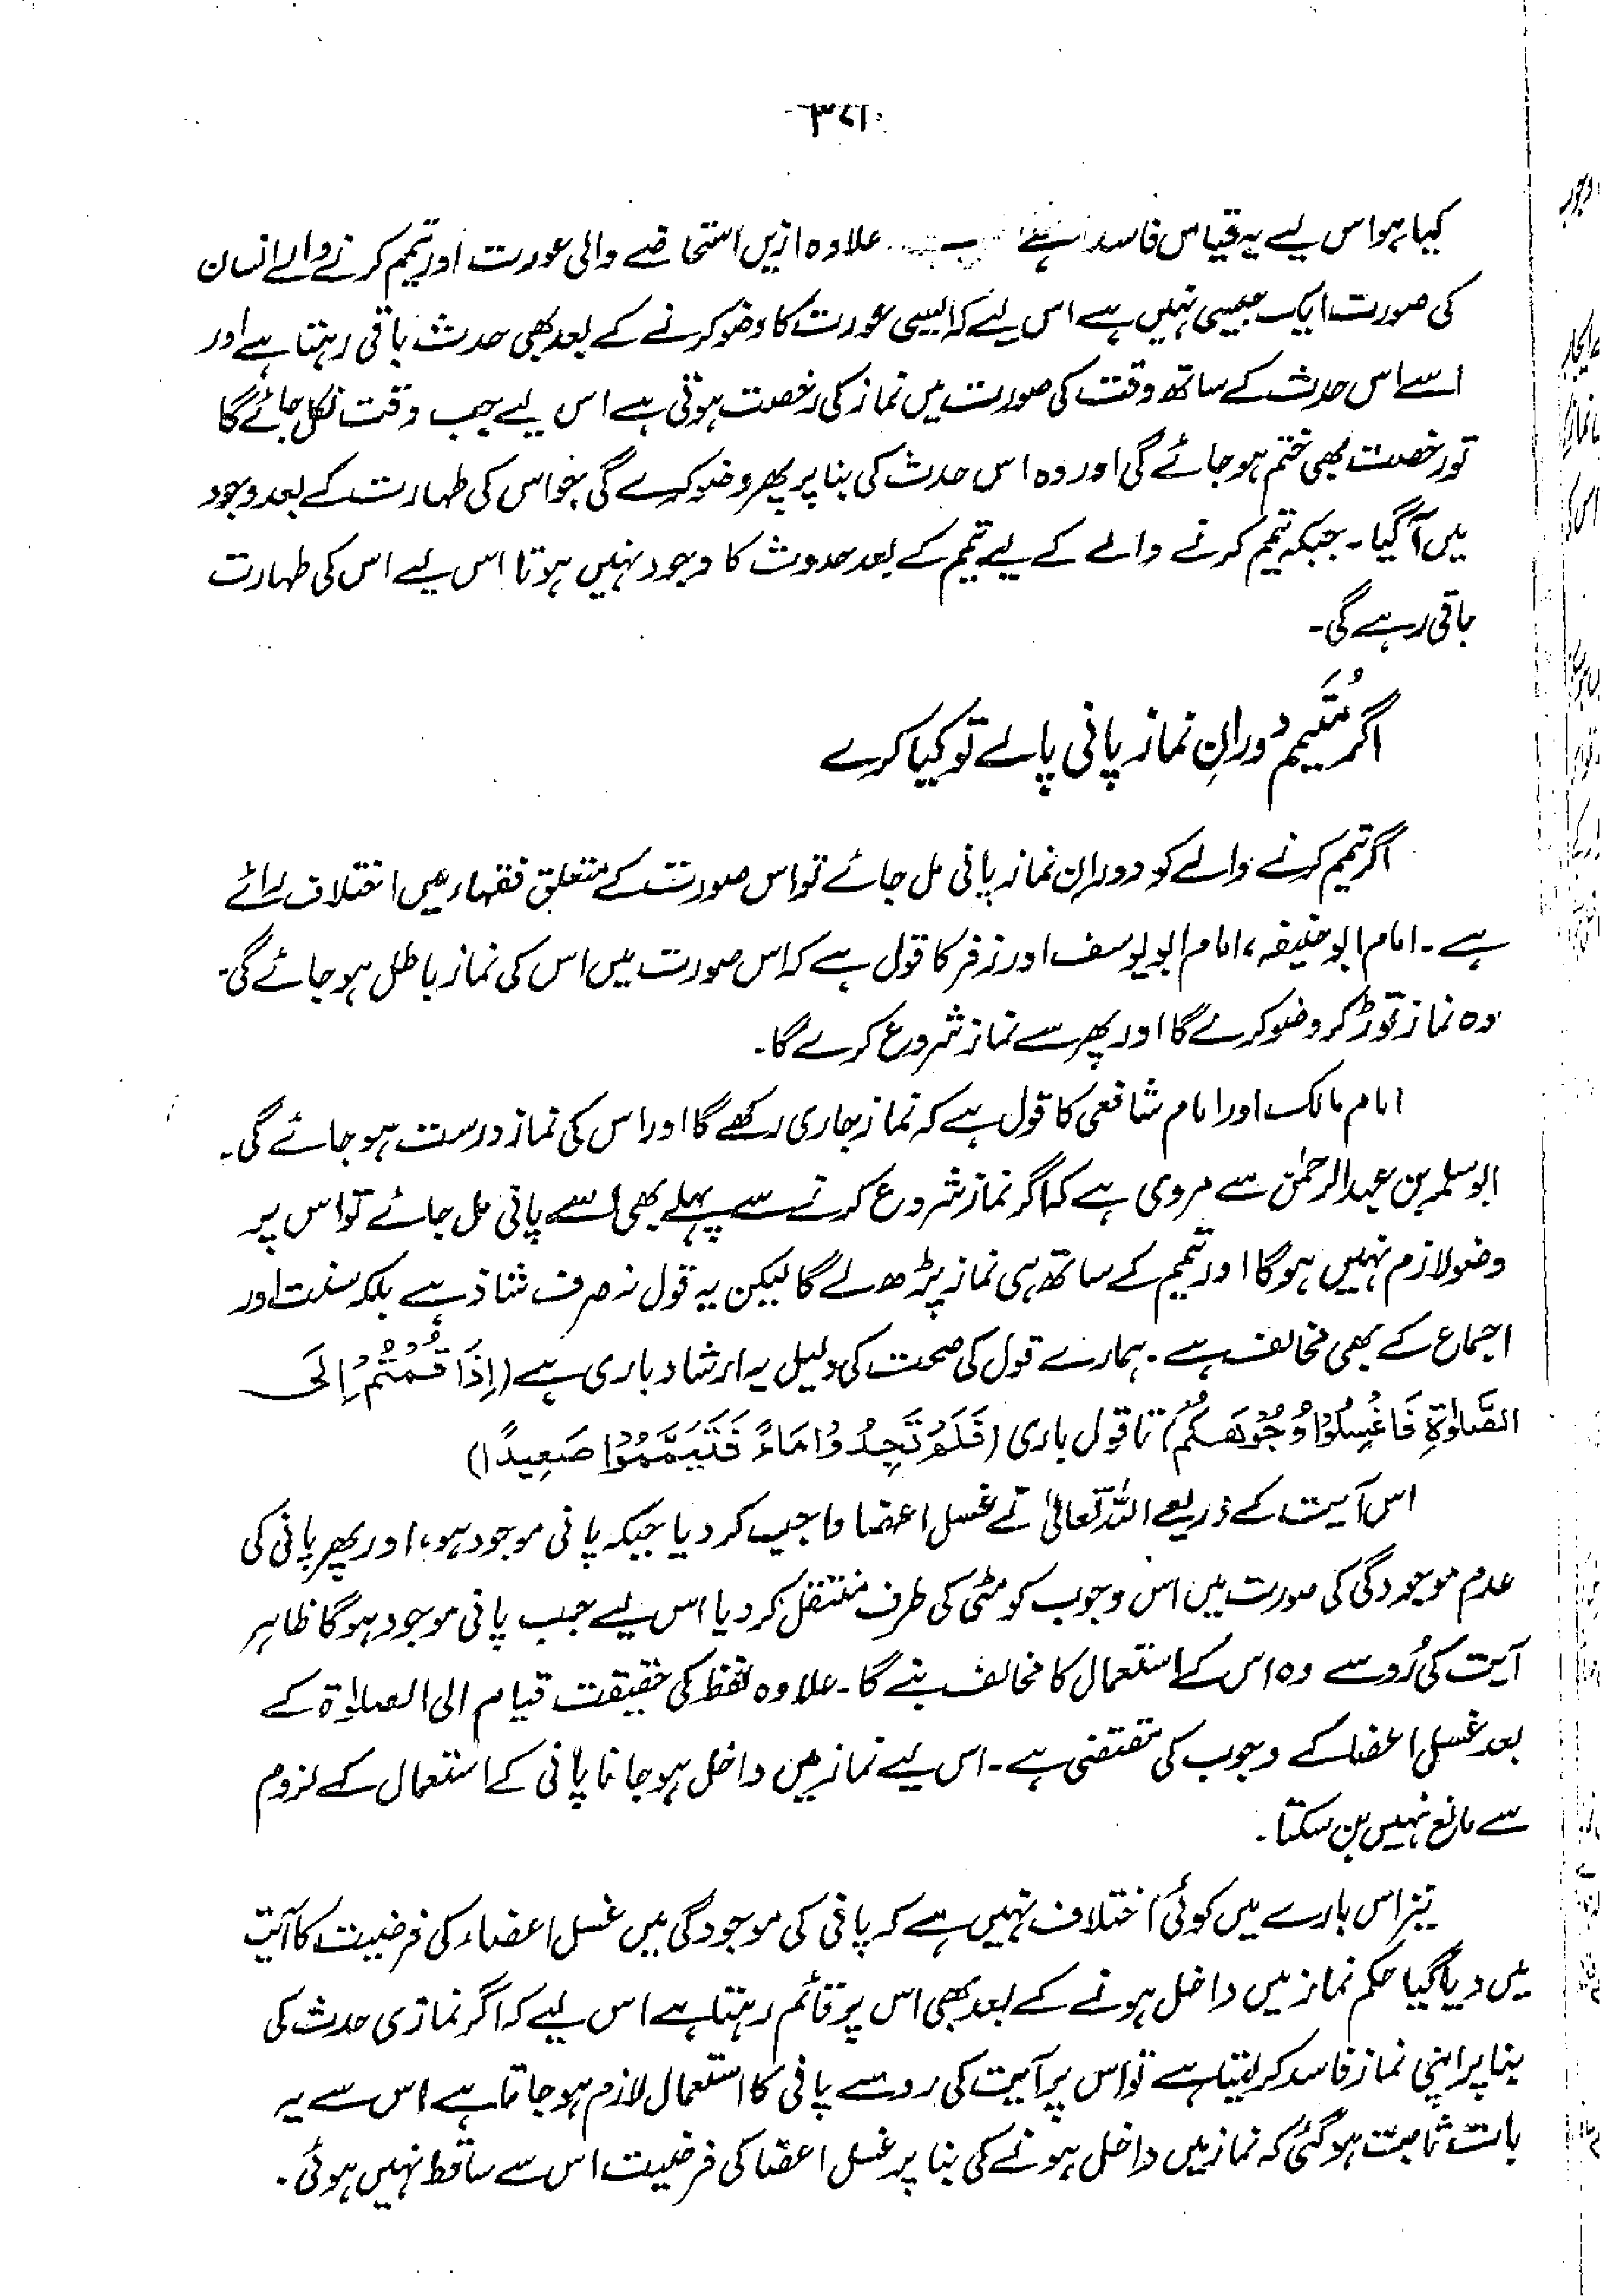 ۳۷۱
کیا ہو اس لیے یہ قیاس فاسد ہے علاوہ ازیں استحاضے والی عورت اور تیمم کرنے والے انسان
کی صورت ایک جیسی نہیں ہے اس لیے کہ ایسی عورت کا وضو کرنے کے بعد بھی حدث باقی رہتا ہے اور
اسے اس حدث کے ساتھ وقت کی صورت میں نماز کی رخصت ہوتی ہے اس لیے جب وقت نکل جائے گا
تو رخصت بھی ختم ہو جائے گی اور وہ اس حدث کی بنا پر پھر وضو کرے گی جو اس کی طہارت کے بعد وجود
میں آ گیا۔ جبکہ تیمم کرنے والے کے لیے تیمم کے بعد حدوث کا وجود نہیں ہوتا اس لیے اس کی طہارت
باقی رہے گی۔
اگر مُتَیمم دورانِ نماز پانی پالے تو کیا کرے
اگر تیمم کرنے والے کو دورانِ نماز پانی مل جائے تو اس صورت کے متعلق فقہاء میں اختلاف رائے
ہے۔ امام ابوحنیفہ، امام ابویوسف اور زفر کا قول ہے کہ اس صورت میں اس کی نماز باطل ہو جائے گی۔
وہ نماز توڑ کر وضو کرے گا اور پھر سے نماز شروع کرے گا۔
امام مالک اور امام شافعی کا قول ہے کہ نماز جاری رکھے گا اور اس کی نماز درست ہو جائے گی۔
ابوسلمہ بن عبدالرحمٰن سے مروی ہے کہ اگر نماز شروع کرنے سے پہلے بھی اسے پانی مل جائے تو اس پر
وضو لازم نہیں ہوگا اور تیمم کے ساتھ ہی نماز پڑھ لے گا لیکن یہ قول نہ صرف شاذ ہے بلکہ سنت اور
اجماع کے بھی مخالف ہے۔ ہمارے قول کی صحت کی دلیل یہ ارشاد باری ہے (اِذَا قُمْتُمْ اِلَی
الصَّلٰوۃِ فَاغْسِلُوْا وُجُوْھَکُمْ) تا قول باری (فَلَمْ تَجِدُوْا مَاءً فَتَیَمَّمُوْا صَعِیدًا)
اس آیت کے ذریعے اللہ تعالیٰ نے غسل اعضا واجب کر دیا جبکہ پانی موجود ہو، اور پھر پانی کی
عدم موجودگی کی صورت میں اس وجوب کو مٹی کی طرف منتقل کر دیا اس لیے جب پانی موجود ہوگا ظاہر
آیت کی رُو سے وہ اس کے استعمال کا مخالف بنے گا۔ علاوہ لفظ کی حقیقت قیام الی الصلاۃ کے
بعد غسل اعضا کے وجوب کی مقتضی ہے۔ اس لیے نماز میں داخل ہو جانا پانی کے استعمال کے لزوم
سے مانع نہیں بن سکتا۔
نیز اس بارے میں کوئی اختلاف نہیں ہے کہ پانی کی موجودگی میں غسل اعضاء کی فرضیت کا آیت
میں دیا گیا حکم نماز میں داخل ہونے کے بعد بھی اس پر قائم رہتا ہے اس لیے کہ اگر نمازی حدث کی
بنا پر اپنی نماز فاسد کر لیتا ہے تو اس پر آیت کی رو سے پانی کا استعمال لازم ہو جاتا ہے اس سے یہ
بات ثابت ہو گئی کہ نماز میں داخل ہونے کی بنا پر غسل اعضا کی فرضیت اس سے ساقط نہیں ہوئی۔